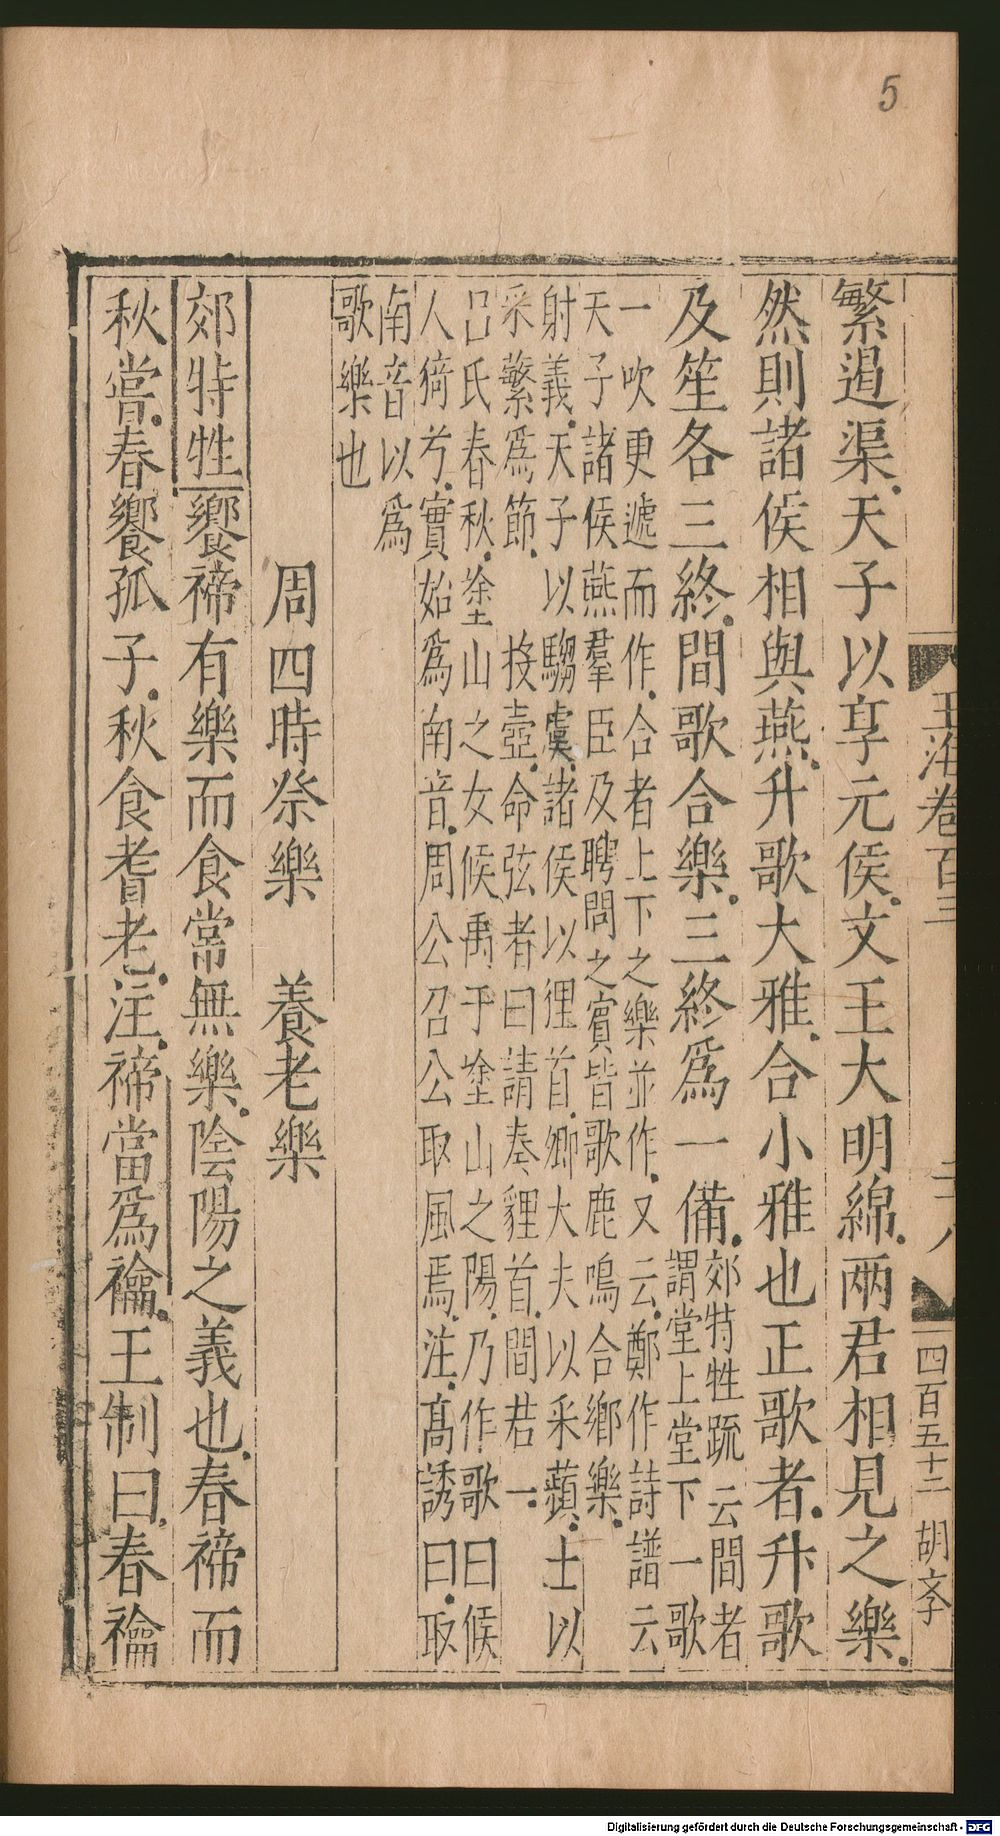 5
玉海卷百三
二十八
四百五十二
胡孝
繁遏渠天子以享元侯文王大明綿兩君相見之樂
然則諸侯相與燕升歌大雅合小雅也正歌者升歌
及笙各三終間歌合樂三終爲一備郊特牲疏云間者
謂堂上堂下一歌
一吹更遞而作合者上下之樂並作又云鄭作詩譜云
天子諸侯燕羣臣及聘問之賓皆歌鹿鳴合鄉樂
射義天子以騶虞諸侯以貍首卿大夫以采蘋士以
采蘩爲節 投壺命弦者曰請奏貍首間若一
呂氏春秋塗山之女候禹于塗山之陽乃作歌曰候
人猗兮實始爲南音周公召公取風焉注高誘曰取
南音以爲
歌樂也
周四時祭樂 養老樂
郊特牲饗禘有樂而食常無樂陰陽之義也春禘而
秋嘗春饗孤子秋食耆老注禘當爲禴王制曰春禴
Digitalisierung gefördert durch die Deutsche Forschungsgemeinschaft - DFG